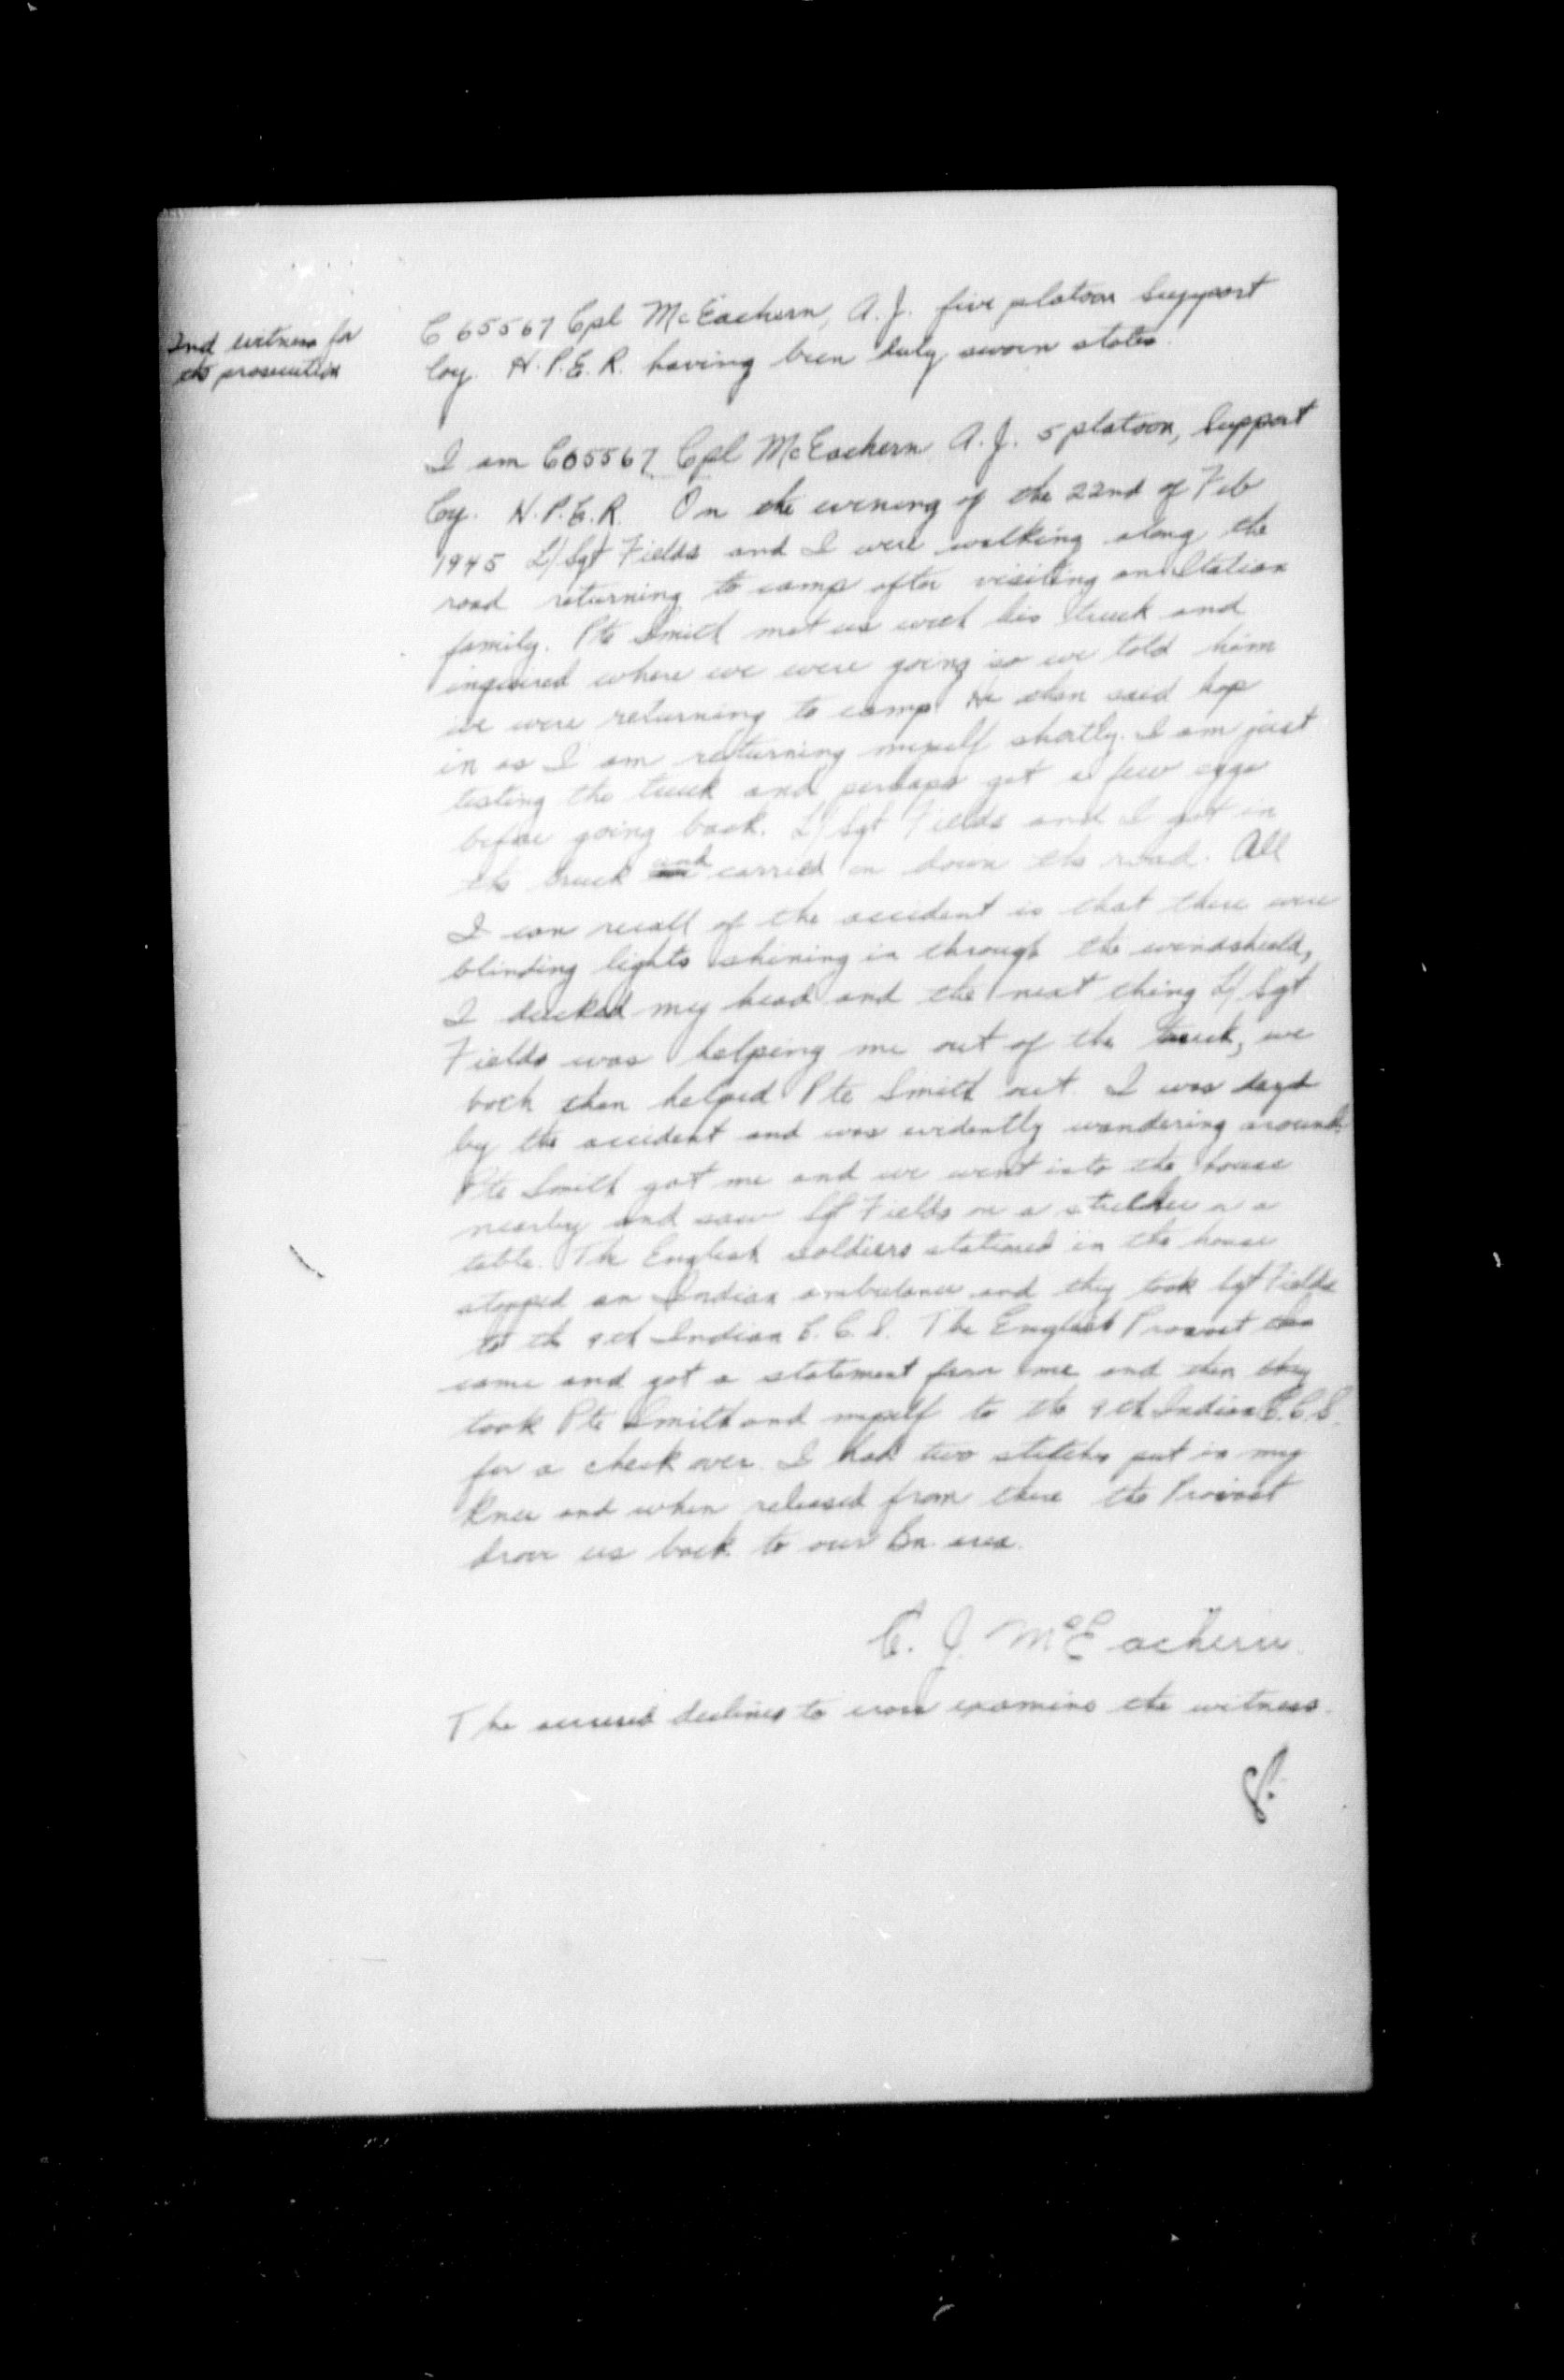 2nd witness for
the prosecution
C 65567 Cpl McEachern, A.J. five platoon Support
Coy. H.P.E.R. having been duly sworn states.
I am C65567 Cpl McEachern A.J. 5 platoon, Support
Coy. H.P.E.R. On the evening of the 22nd of Feb
1945 L/Sgt Fields and I were walking along the
road returning to camp after visiting an Italian
family. Pte Smith met us with his truck and
inquired where we were going so we told him
we were returning to camp. He then said hop
in as I am returning myself shortly. I am just
testing the truck and perhaps get a few eggs
before going back. L/Sgt Fields and I got in
the truck and carried on down the road. All
I can recall of the accident is that there were
blinding lights shining in through the windshield,
I ducked my head and the next thing L/Sgt
Fields was helping me out of the truck, we
both then helped Pte Smith out. I was dazed
by the accident and was evidently wandering around.
Pte Smith got me and we went into the house
nearby and saw Sgt Fields on a stretcher on a
table. The English soldiers stationed in the house
stopped an Indian ambulance and they took Sgt Fields
to the 9th Indian C.C.S. The English Provost then
came and got a statement from me and then they
took Pte Smith and myself to the 9th Indian C.C.S.
for a check over. I had two stitches put in my
knee and when released from there the Provost
drove us back to our Bn. area.
J. McEachern
The accused declines to cross examine the witness.